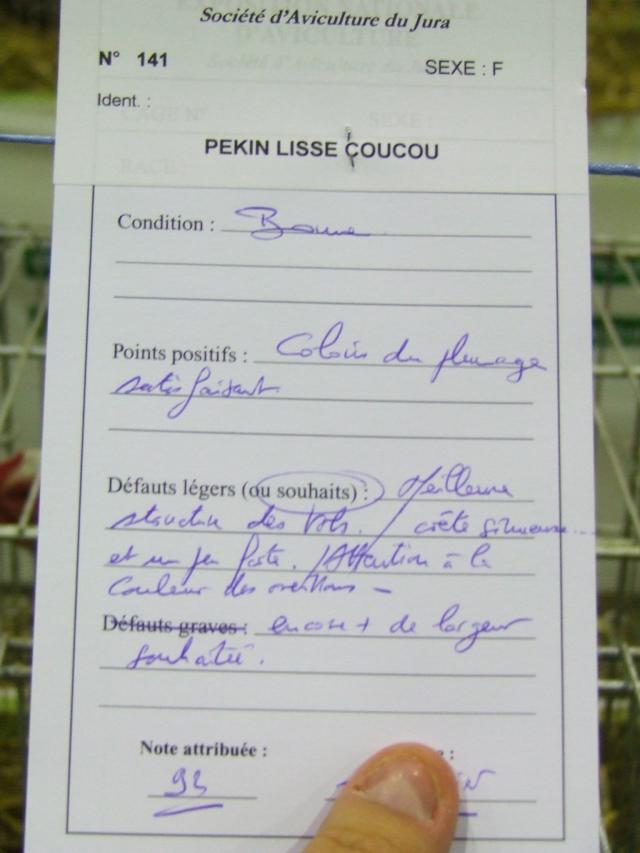 Société d'Aviculture du Jura
N° 141
SEXE : F
Ident. :
PEKIN LISSE COUCOU
Condition : Bonne
Points positifs : Coloris du plumage
satisfaisant
Défauts légers (ou souhaits) : Meilleure
structure des vols. / crête sinueuse...
et un peu forte. / Attention à la
couleur des oreillons -
Défauts graves : encore + de largeur
souhaitée.
Note attribuée :
93